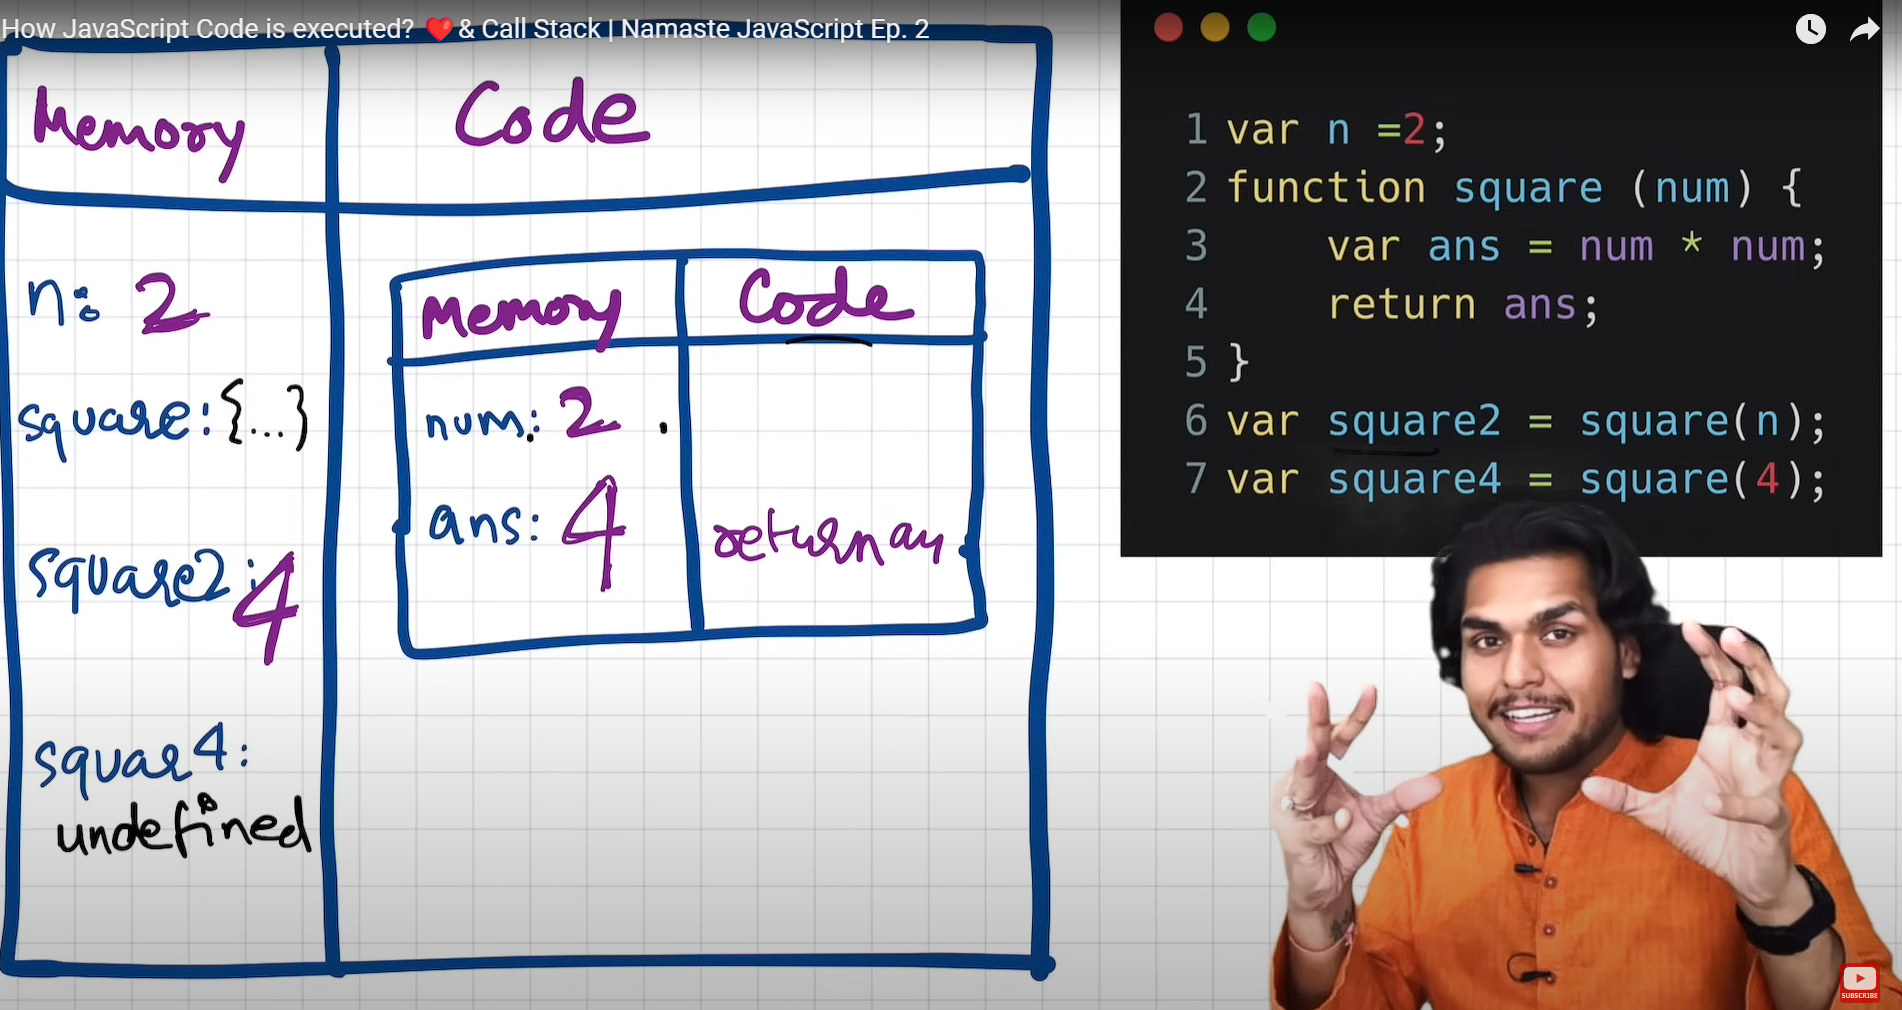 How JavaScript Code is executed? ❤️ & Call Stack | Namaste JavaScript Ep. 2
Memory
Code
n: 2
square: {...}
square2: 4
squar4:
undefined
Memory
Code
num: 2
ans: 4
return an
1 var n =2;
2 function square (num) {
3 var ans = num * num;
4 return ans;
5 }
6 var square2 = square(n);
7 var square4 = square(4);
SUBSCRIBE